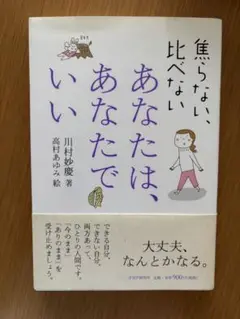 焦らない、
比べない
あなたは、
あなたで
いい
川村妙慶 著
高村あゆみ 絵
できる自分、
できない自分。
両方あって、
ひとりの人間です。
「今のまま」
「ありのまま」を
受け止めましょう。
大丈夫、
なんとかなる。